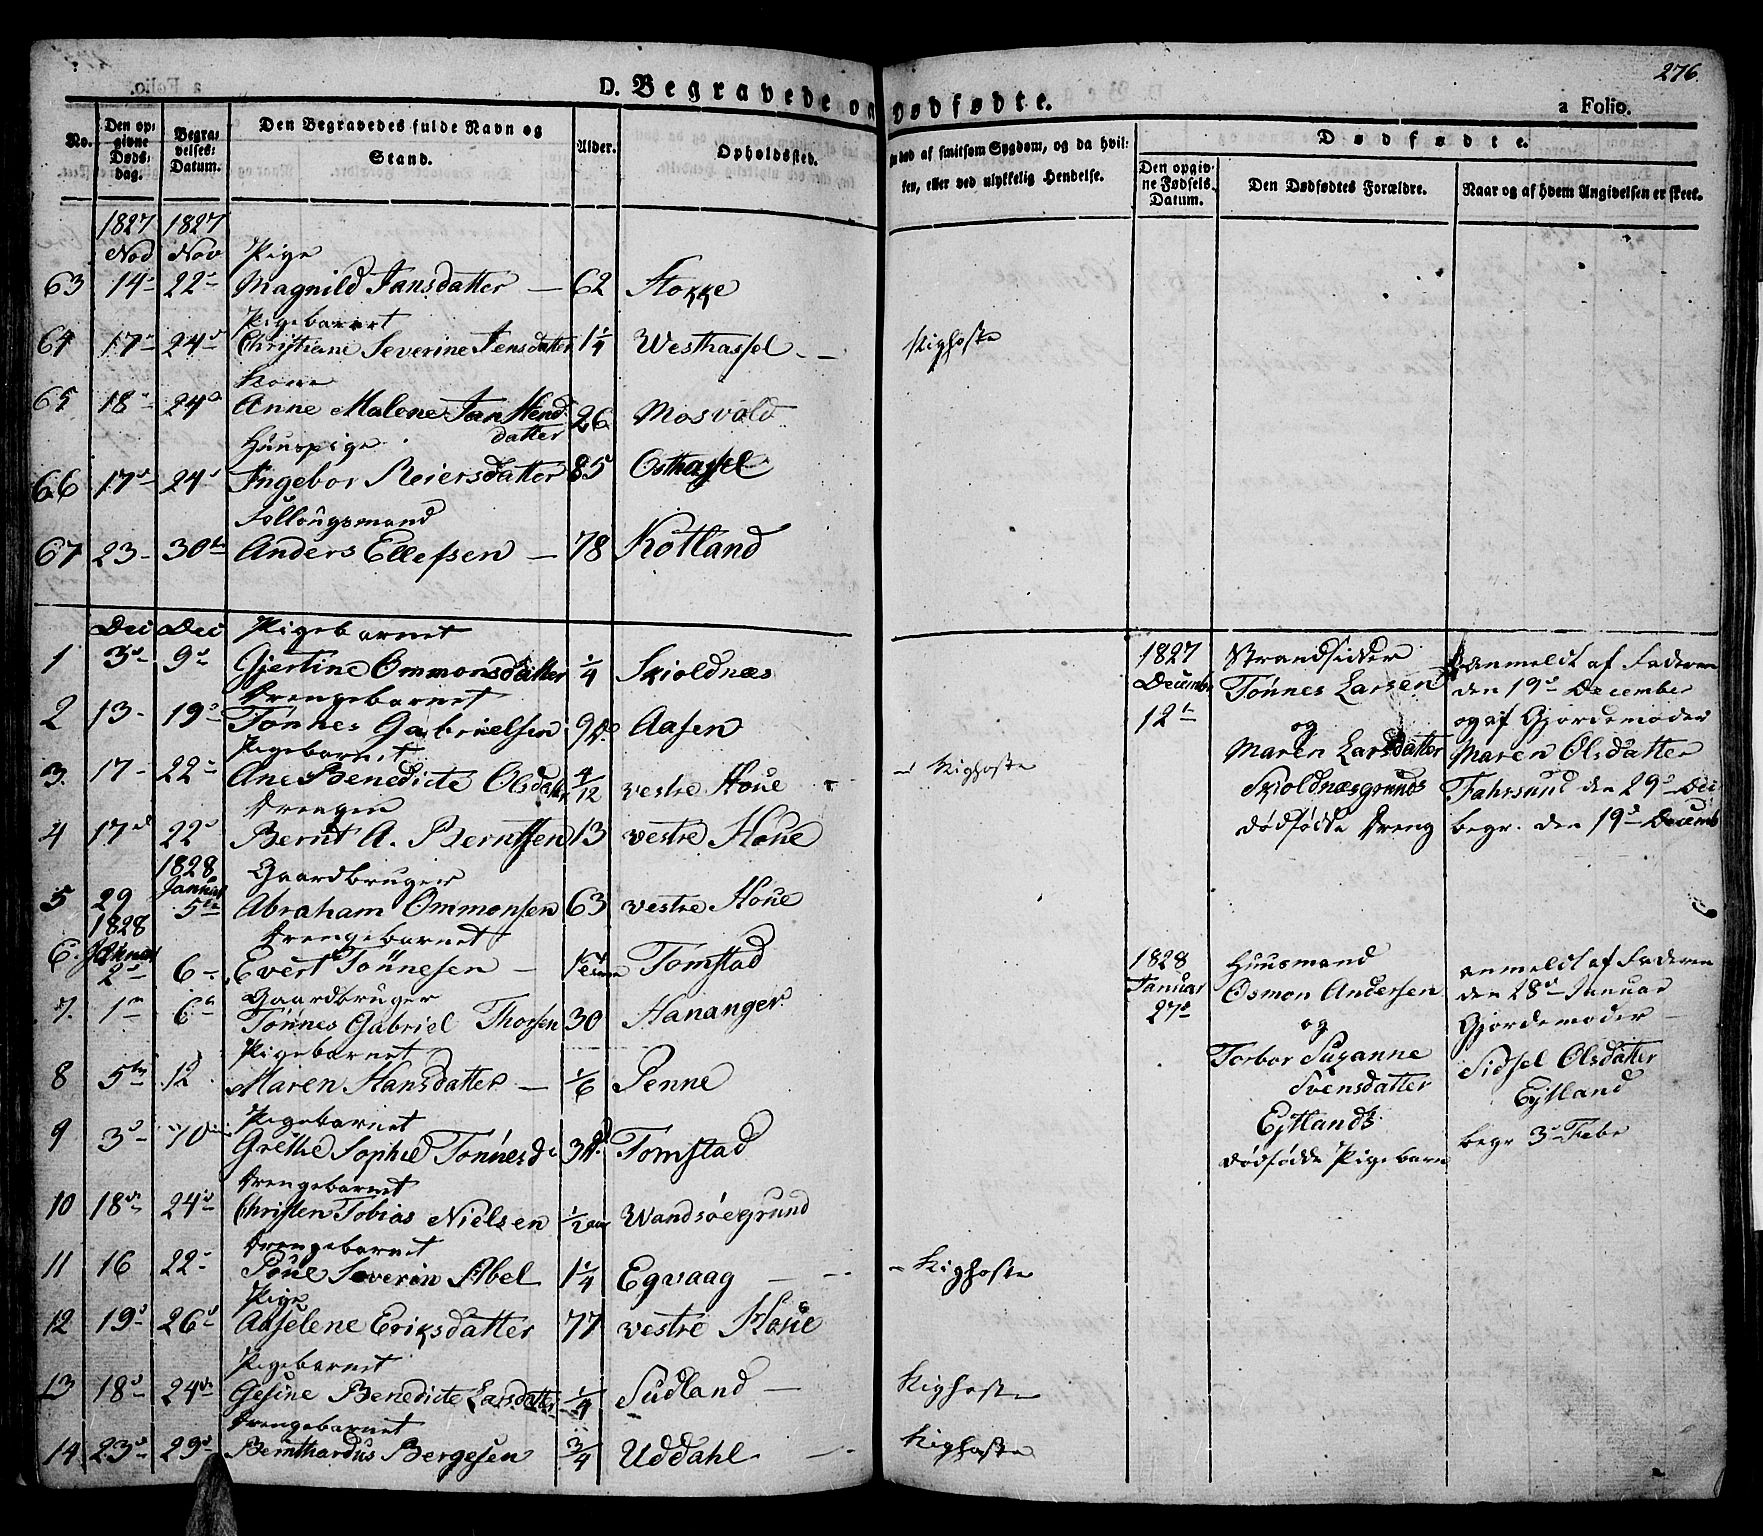 276
D. Begravede og Dødfødte.
a Folio.
No.
Den opgivne Døds-dag.
Begravelses-Datum.
Den Begravedes fulde Navn og Stand.
Alder.
Opholdssted.
død af smitsom Sygdom, og da hvilken, eller ved ulykkelig Hendelse.
Dødfødte.
Den opgivne Fødsels Datum.
Den Dødfødtes Forældre.
Naar og af hvem Angivelsen er skeet.
1827 1827
Nov Nov Pige
63 14 22 Magnild Jansdatter — 62 Stokke
Pigebarnet
64 17 24 Christiane Severine Jensdatter 1 1/4 Westhassel Kighoste
Kone
65 18 24 Anne Malene Jan Hend datter 26 Mosvold
Huuspige
66 17 24 Ingebor Reiersdatter 85 Osthassel
Follougsmand
67 23 30 Anders Ellefsen — 78 Kotland
Deci Deci Pigebarnet
1 3 9 Gjertine Ommonsdatter 1/4 Skioldnæs
Drengebarnet
2 13 19 Tønnes Gabrielsen 9 d. Aasen
Pigebarnet
3. 17 22 Ane Benedicte Olsdatter 4/12 vestre Houe Kighoste
Drengen
4 17 22 Bernt A. Berntsen 13 vestre Houe
1828 Januar Gaardbruger
5 29 5 Abraham Ommonsen 63 vestre Houe
1828 Januar Drengebarnet
6. 2 6 Evert Tønnesen — Tomstad
Gaardbruger
7. 1 6 Tønnes Gabriel Thorsen 30 Hananger
Pigebarnet
8 5 12 Maren Hansdatter — 1/6 Penne
Pigebarnet
9 3 10 Grethe Sophie Tonnesd 3 d. Tomstad
Drengebarnet
10 18 24 Christen Tobias Nielsen 1/2 aar Wandsøegrund
Drengebarnet
11 16 22 Poue Severin Abel 1 1/4 Egvaag — Kighoste
Pige
12 19 26 Aaselene Eriksdatter 77 vestre Houe
Pigebarnet
13 18 24 Gesine Benedicte Larsdatter 1/4 Sudland — Kighoste
Drengebarnet
14 23 29 Bernthardus Bergesen 3/4 Uddahl — Kighoste
1827
December
12
Strandsidder
Tønnes Larsen
og
Maren Larsdatter
Skioldnæsgrunds
dødfødde Dreng
anmeldt af Faderen
den 19 December
og af Gjordemoder
Maren Olsdatter
Fahrsund den 29 Deci
begr. den 19 Decemb
1828
Januar
27
Huusmand
Osmon Andersen
og
Torbor Suzanne
Svensdatter
Eytlands
dødfødde Pigebarn
anmeldt af Faderen
den 28 Januar
Gjordemoder
Sidsel Olsdatter
Eytland
begr 3 Febr